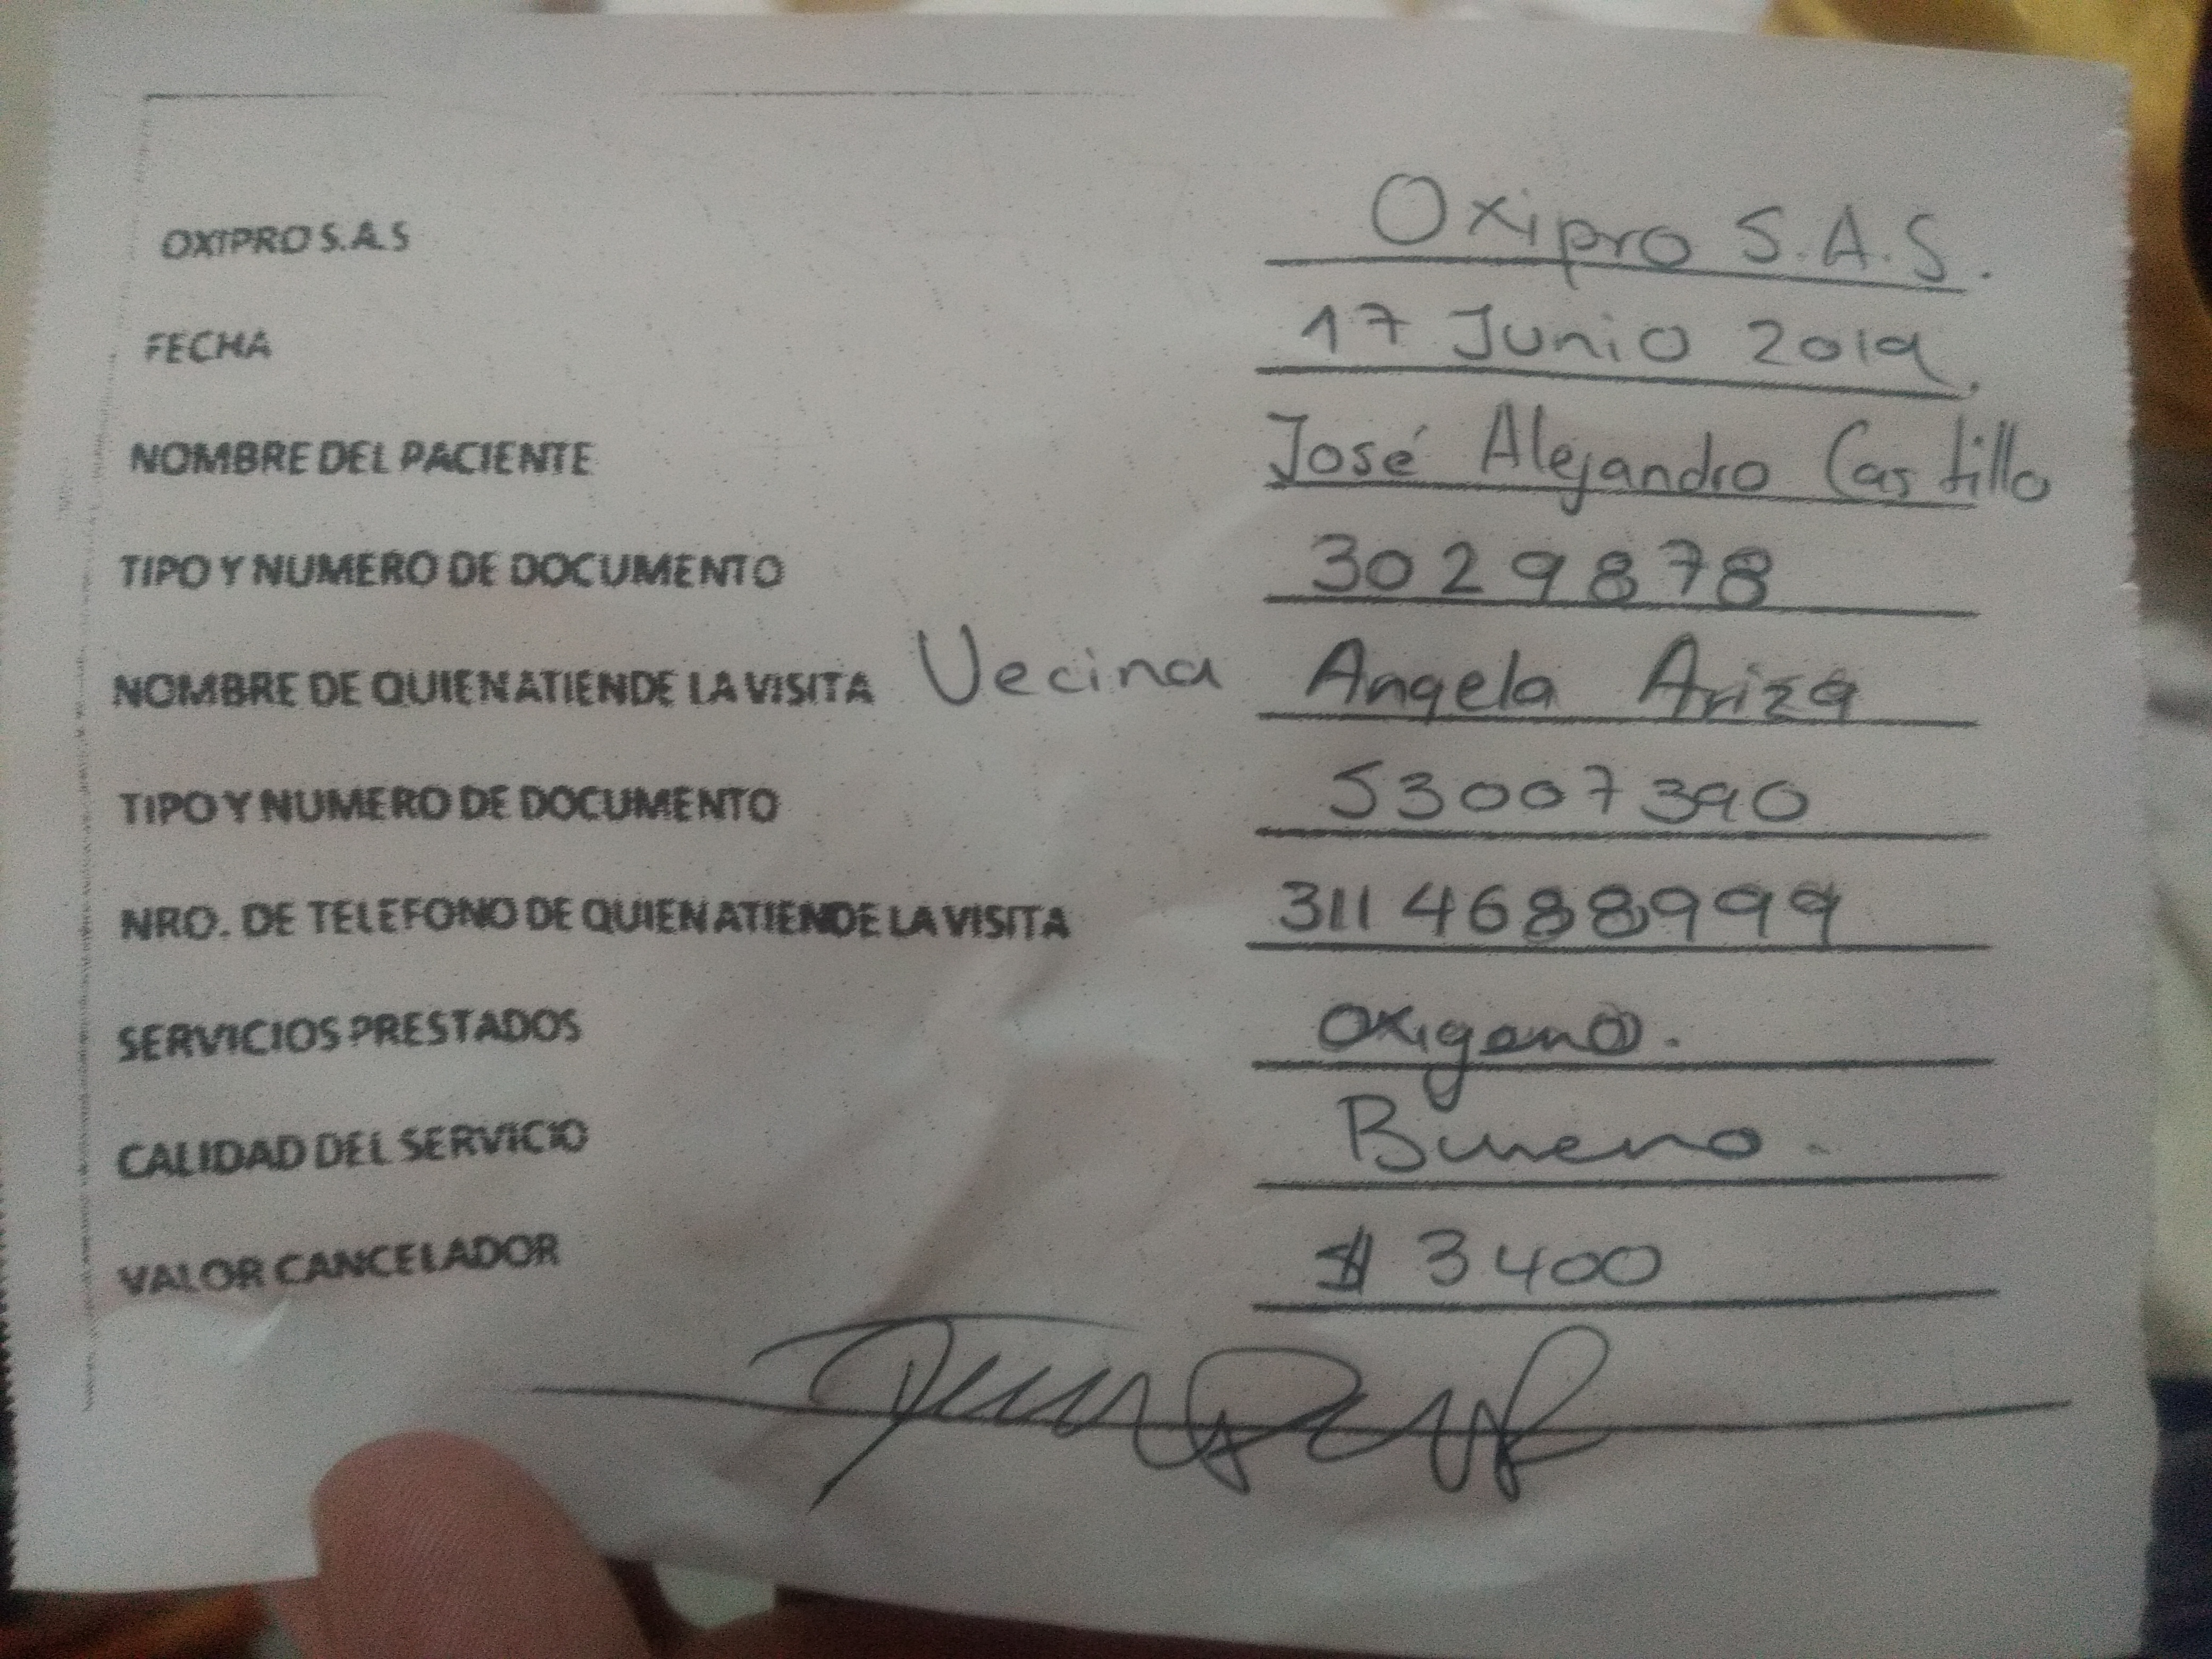 OXIPRO S.A.S Oxipro S.A.S.
FECHA 17 Junio 2019.
NOMBRE DEL PACIENTE José Alejandro Castillo
TIPO Y NUMERO DE DOCUMENTO 3029878
NOMBRE DE QUIEN ATIENDE LA VISITA Vecina Angela Ariza
TIPO Y NUMERO DE DOCUMENTO 53007390
NRO. DE TELEFONO DE QUIEN ATIENDE LA VISITA 311 4688999
SERVICIOS PRESTADOS Oxigeno.
CALIDAD DEL SERVICIO Bueno.
VALOR CANCELADOR $ 3400